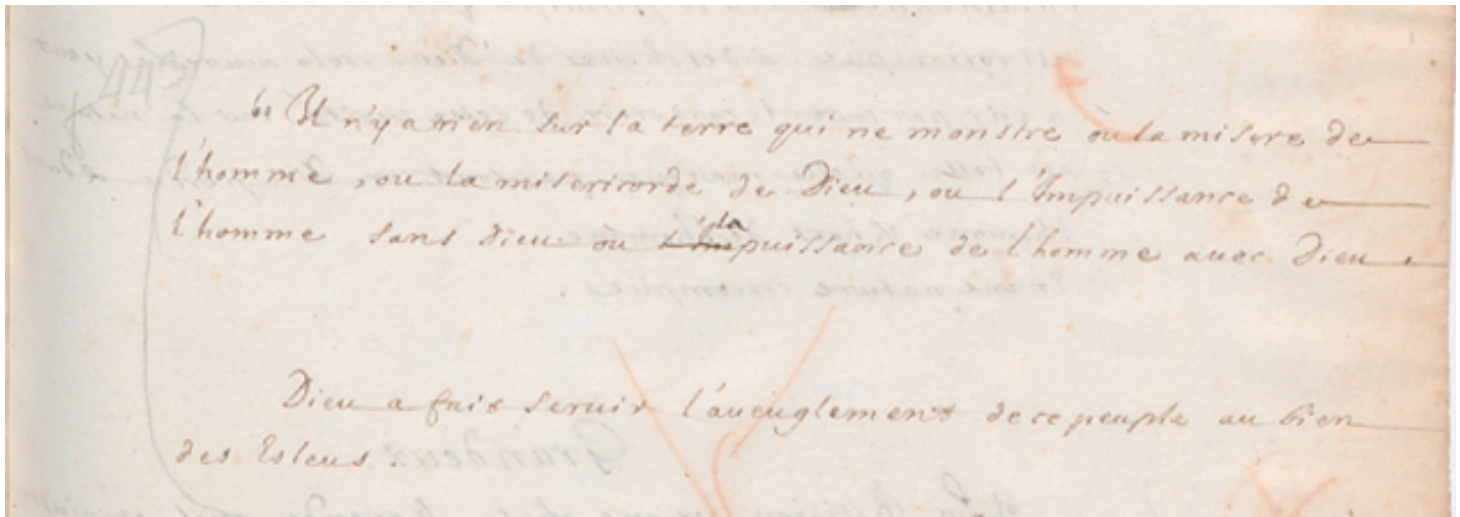 Il n'y a rien sur la terre qui ne monstre ou la misere de
l'homme, ou la misericorde de Dieu, ou l'Impuissance de
l'homme sans Dieu ou la puissance de l'homme avec Dieu.
Dieu a fait servir l'aveuglement de ce peuple au bien
des Esleus.